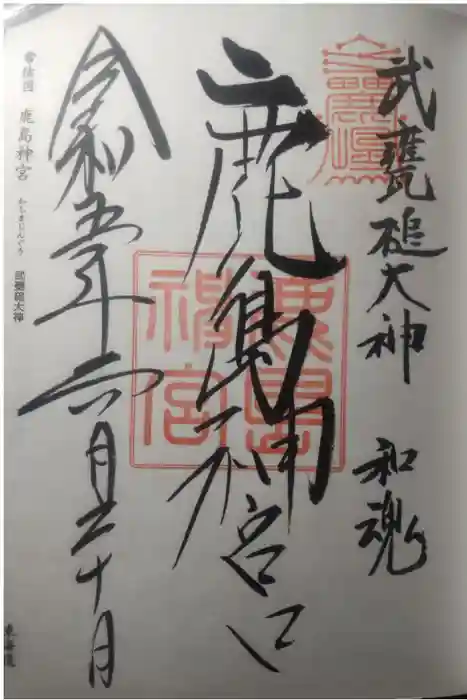 武甕槌大神 和魂
鹿島神宮
鹿島神宮
令和五年六月二十日
常陸国 鹿島神宮 かしまじんぐう 武甕槌大神